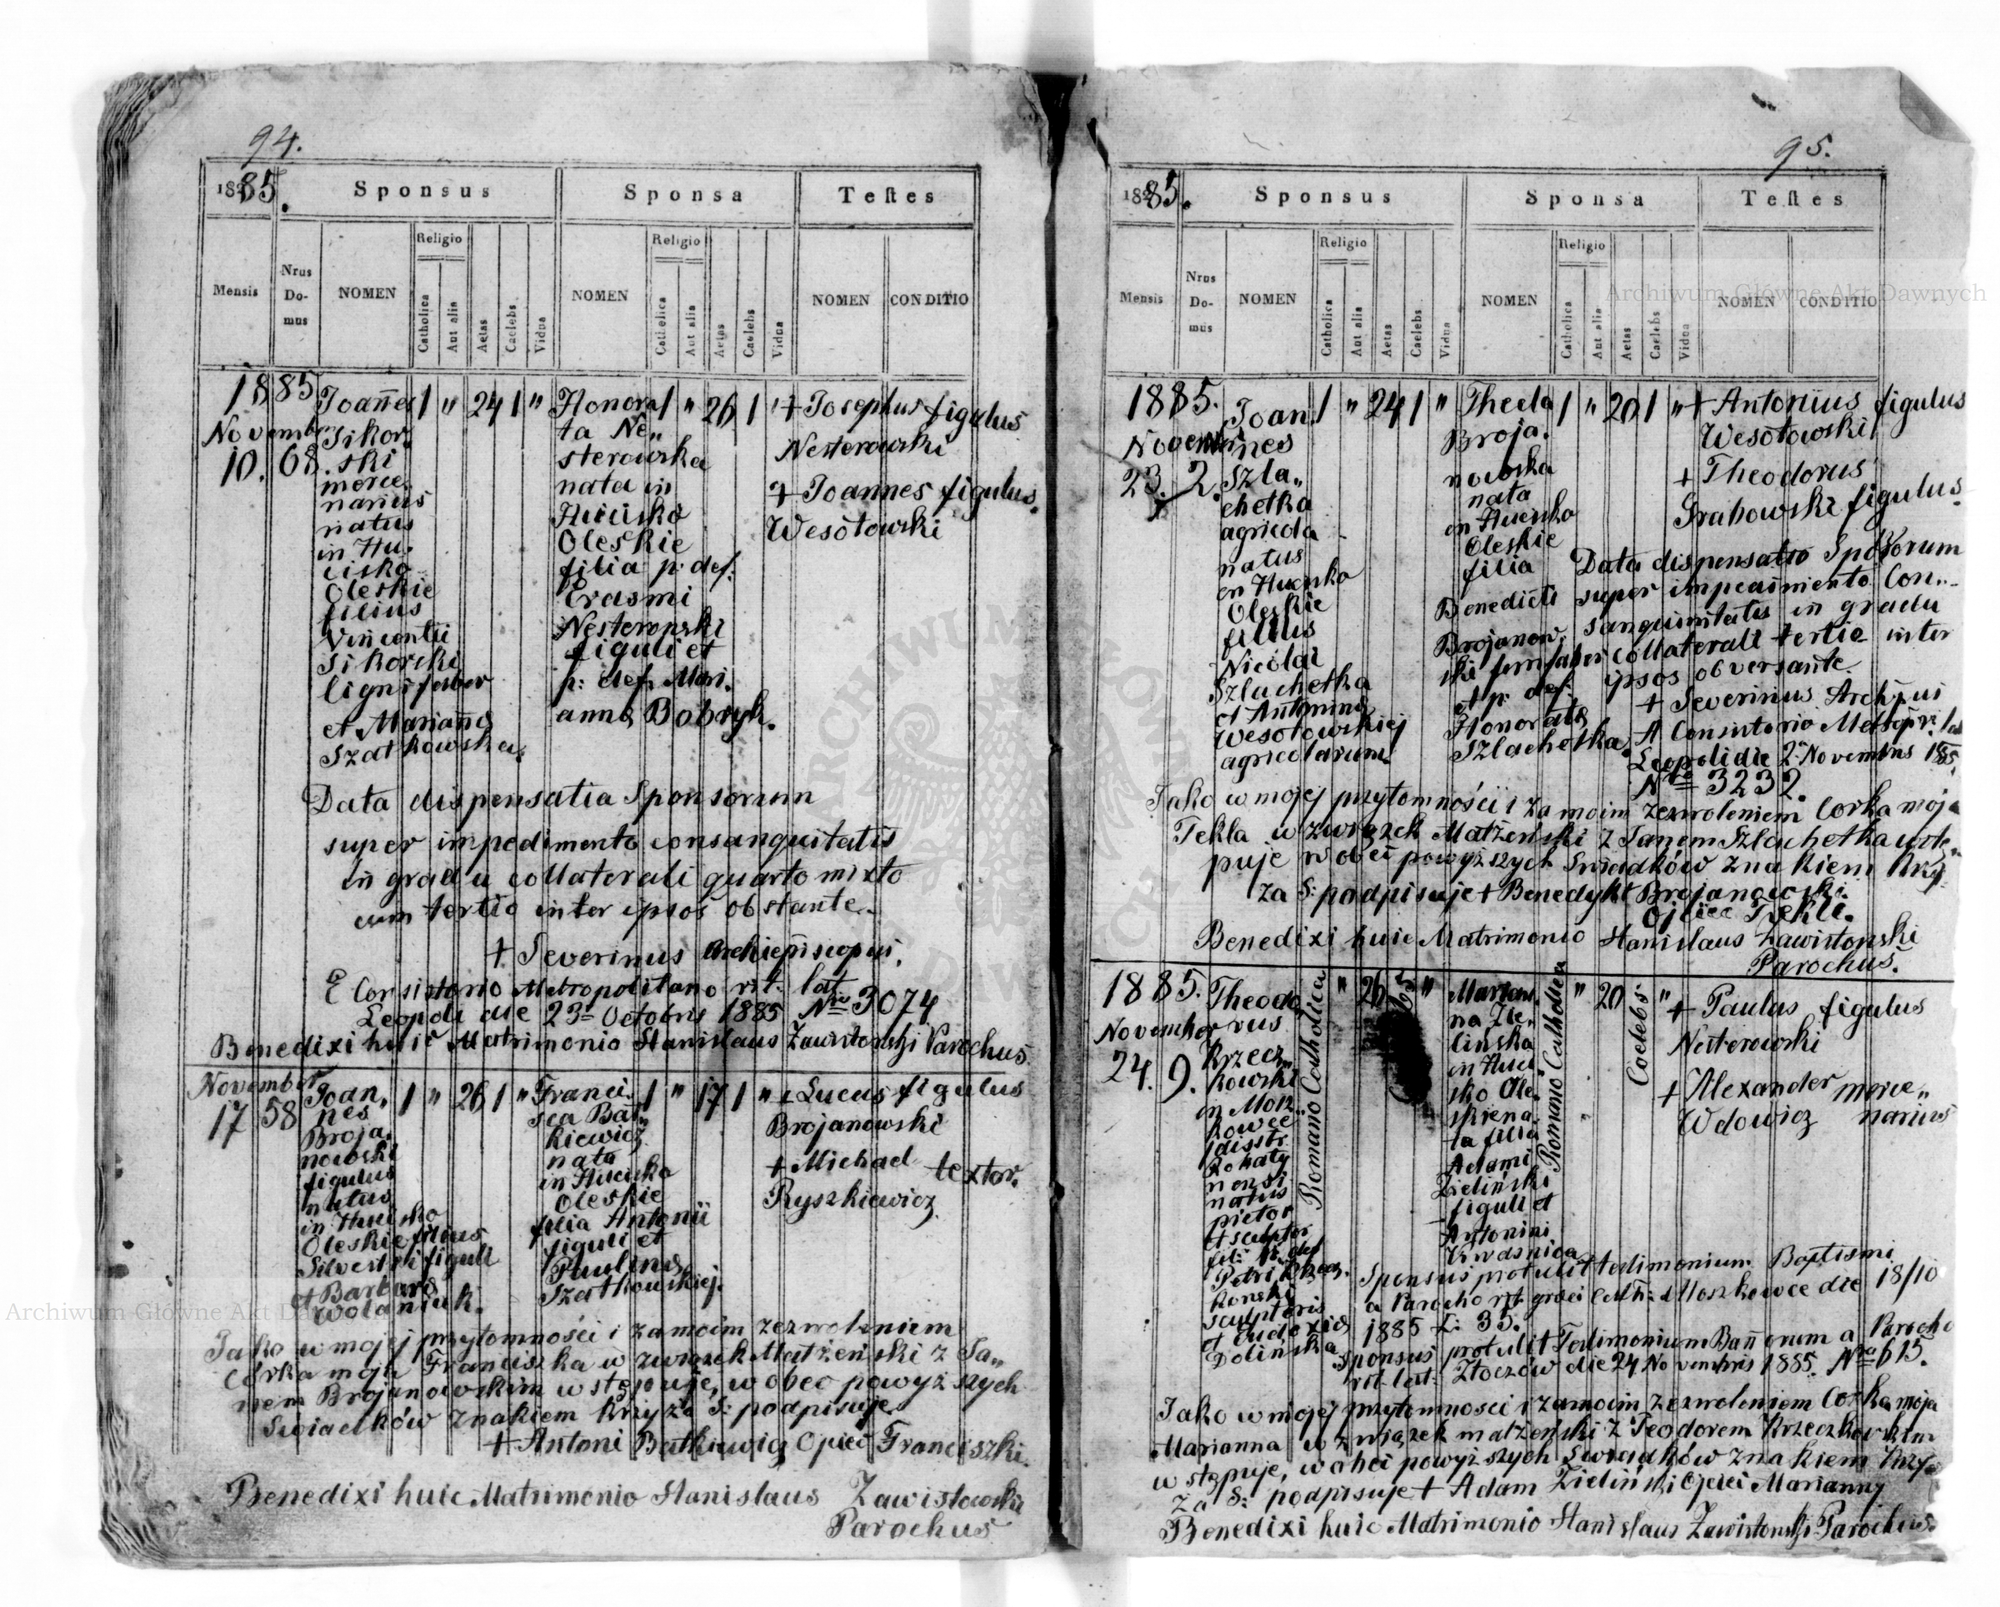 94.
1885.
Sponsus
Sponsa
Teſtes
Mensis
Nrus Do- mus
NOMEN
Religio
Catholica
Aut alia
Aetas
Caelebs
Vidua
NOMEN
Religio
Catholica
Aut alia
Aetas
Caelebs
Vidua
NOMEN
CONDITIO
1885
Novembr
10. 68.
Joannes
Sikor-
ski
merce.
narius
natus
in Hu.
cisko
Oleskie
filius
Vincentii
Sikorski
lignifaber
et Mariannę
Szatkowska.
1 " 24 1 "
Honora
ta Ne„
sterowska
nata in
Hucisko
Oleskie
filia p: def:
Erasmi
Nesterowski
figuli et
p: def. Mari.
annę Bobryk.
1 " 26 1 "
+ Josephus figulus
Nesterowski
+ Joannes figulus.
Wesołowski
Data dispensatia Sponsorum
super impedimento consanguitatis
in gradu collaterali quarto mixto
cum tertio inter ipsos obstante.
+ Severinus Archiepiscopus.
E Consistorio Metropolitano rit. lat.
Leopoli die 23 Octobris 1885 Nro 3074
Benedixi huic Matrimonio Stanislaus Zawistowski Parochus.
November
17 58
Joan,
nes
Broja.
nowski
figulus
natus
in Hucisko
Oleskie filius
Silvestri figuli
et Barbarę
Wolaniuk.
1 " 26 1 "
Franci.
sca Bał„
kiewicz
nata
in Hucisko
Oleskie
filia Antonii
figuli et
Paulinę
Szatkowskiej.
1 " 17 1 "
+ Lucas figulus
Brojanowski
+ Michael textor.
Ryszkiewicz
Jako w mojej przytomności i za moim zezwoleniem
Córka moja Franciszka w związek Małżeński z Ja„
nem Brojanowskim wstępuje, wobec powyższych
Swiadków znakiem Krzyża S: podpisuję
+ Antoni Bałkiewicz Ojciec Franciszki.
Benedixi huic Matrimonio Stanislaus Zawistowski
Parochus
95.
1885.
Sponsus
Sponsa
Teſtes
Mensis
Nrus Do- mus
NOMEN
Religio
Catholica
Aut alia
Aetas
Caelebs
Vidua
NOMEN
Religio
Catholica
Aut alia
Aetas
Caelebs
Vidua
NOMEN
CONDITIO
1885.
Novembr
23. 2.
Joan
nes
Szla„
chetka
agricola
natus
in Hucisko
Oleskie
filius
Nicolai
Szlachetka
et Antoninę
Wesołowskiej
agricolarum.
1 " 24 1 "
Thecla
Broja.
nowska
nata
in Hucisko
Oleskie
filia
Benedicti
Brojanow.
ski
et p. def.
Honoratę
Szlachetka.
1 " 20 1 "
+ Antonius figulus
Wesołowski
+ Theodorus
Grabowski figulus.
Data dispensatio Sponsorum
super impedimento Con„
sanguinitatis in gradu
collaterali tertio inter
ipsos obversante
+ Severinus Archipi
A Consistorio Metropr: lat
Leopoli die 2 Novembris 1885.
Nro 3232.
Jako w mojej przytomności i za moim zezwoleniem Córka moja
Tekla w związek Małżeński z Janem Szlachetka wstę„
puje wobec powyższych Swiadków znakiem Krzy.
za S: podpisuje + Benedykt Brojanowski.
Ojciec Tekli.
Benedixi huic Matrimonio Stanislaus Zawistowski
Parochus.
1885.
November
24. 9.
Theodo
rus
Krzecz„
kowski
in Mosz„
kowce
distr
Rohaty
nensi
natus
pictor
et sculptor
fil: p. def
Petri Krzecz.
kowski
sculptoris
et Eudoxię
Dolińska
Romano Catholica
" 26 "
Marian.
na Zie„
lińska
in Huci
sko Ole„
skie na
ta filia
Adami
Zieliński
figuli et
Antonini
Kwaśnica
Romano Catholica
" 20 Coelebs "
+ Paulus figulus
Nesterowski
+ Alexander merce„
Wdowicz narius
Sponsus protulit testimonium Baptismi
a Parocho rit. graeci Cath: Moszkowce die 18/10
1885 L: 35.
Sponsus protulit Testimonium Bannorum a Parocho
rit. lat: Złoczów die 24 Novembris 1885. Nro 615.
Jako w mojej przytomnosci i za moim zezwoleniem Corka moja
Marianna w związek małżeński z Teodorem Krzeczkowskim
wstępuje, wobec powyższych Swiadków znakiem Krzy-
za S: podpisuje + Adam Zieliński Ojciec Marianny
Benedixi huic Matrimonio Stanislaus Zawistowski Parochus.
Archiwum Główne Akt Dawnych
Archiwum Główne Akt Dawnych
ARCHIWUM GŁÓWNE AKT DAWNYCH